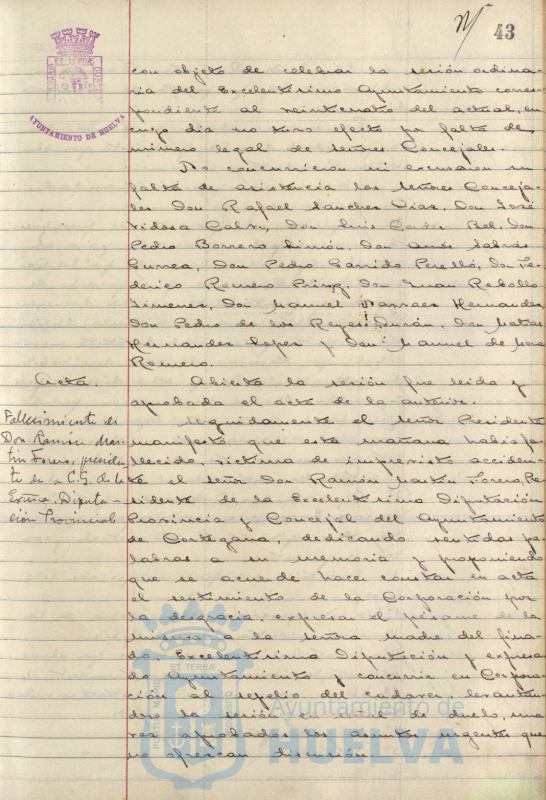 43
AYUNTAMIENTO DE HUELVA
con objeto de celebrar la sesión ordina-
ria del Excelentísimo Ayuntamiento corres-
pondiente al veinticuatro del actual, en
cuyo día no tuvo efecto por falta de
número legal de señores Concejales.
No concurrieron ni excusaron su
falta de asistencia los señores Conceja-
les Don Rafael Sanchez Diaz, Don José
Calvo, Don Luis Bel, Don
Pedro Borrero Limón, Don
Gurrea, Don Pedro Garrido Perelló, Don Fe-
derico Romero Don Juan Rebollo
Jimenez, Don Manuel Hernandez,
Don Pedro de los Reyes Durán, Don Matias
Hernandez Lopez y Don Manuel de Mora
Romero.
Acta.
Abierta la sesión fue leida y
aprobada el acta de la anterior.
Fallecimiento de
Don Ramón Mar-
tin Forero, presiden-
te de la C.G. de la
Excma. Diputa-
ción Provincial
Seguidamente el señor Presidente
manifestó que esta mañana habia fa-
llecido, victima de imprevisto acciden-
te el señor Don Ramón Martin Forero, Pre-
sidente de la Excelentisima Diputación
Provincia y Concejal del Ayuntamiento
de Cortegana, dedicando sentidas pa-
labras a su memoria y proponiendo
que se acuerde hacer constar en acta
el sentimiento de la Corporación por
la desgracia, expresar el pésame de la
misma a la señora madre del fina-
do, Excelentisima Diputación y expresa-
do Ayuntamiento y concurrir en Corpora-
ción al sepelio del cadaver, levantan-
dose la sesión en señal de duelo, una
vez aprobados los asuntos urgentes que
no ofrezcan discusión
Ayuntamiento de
HUELVA